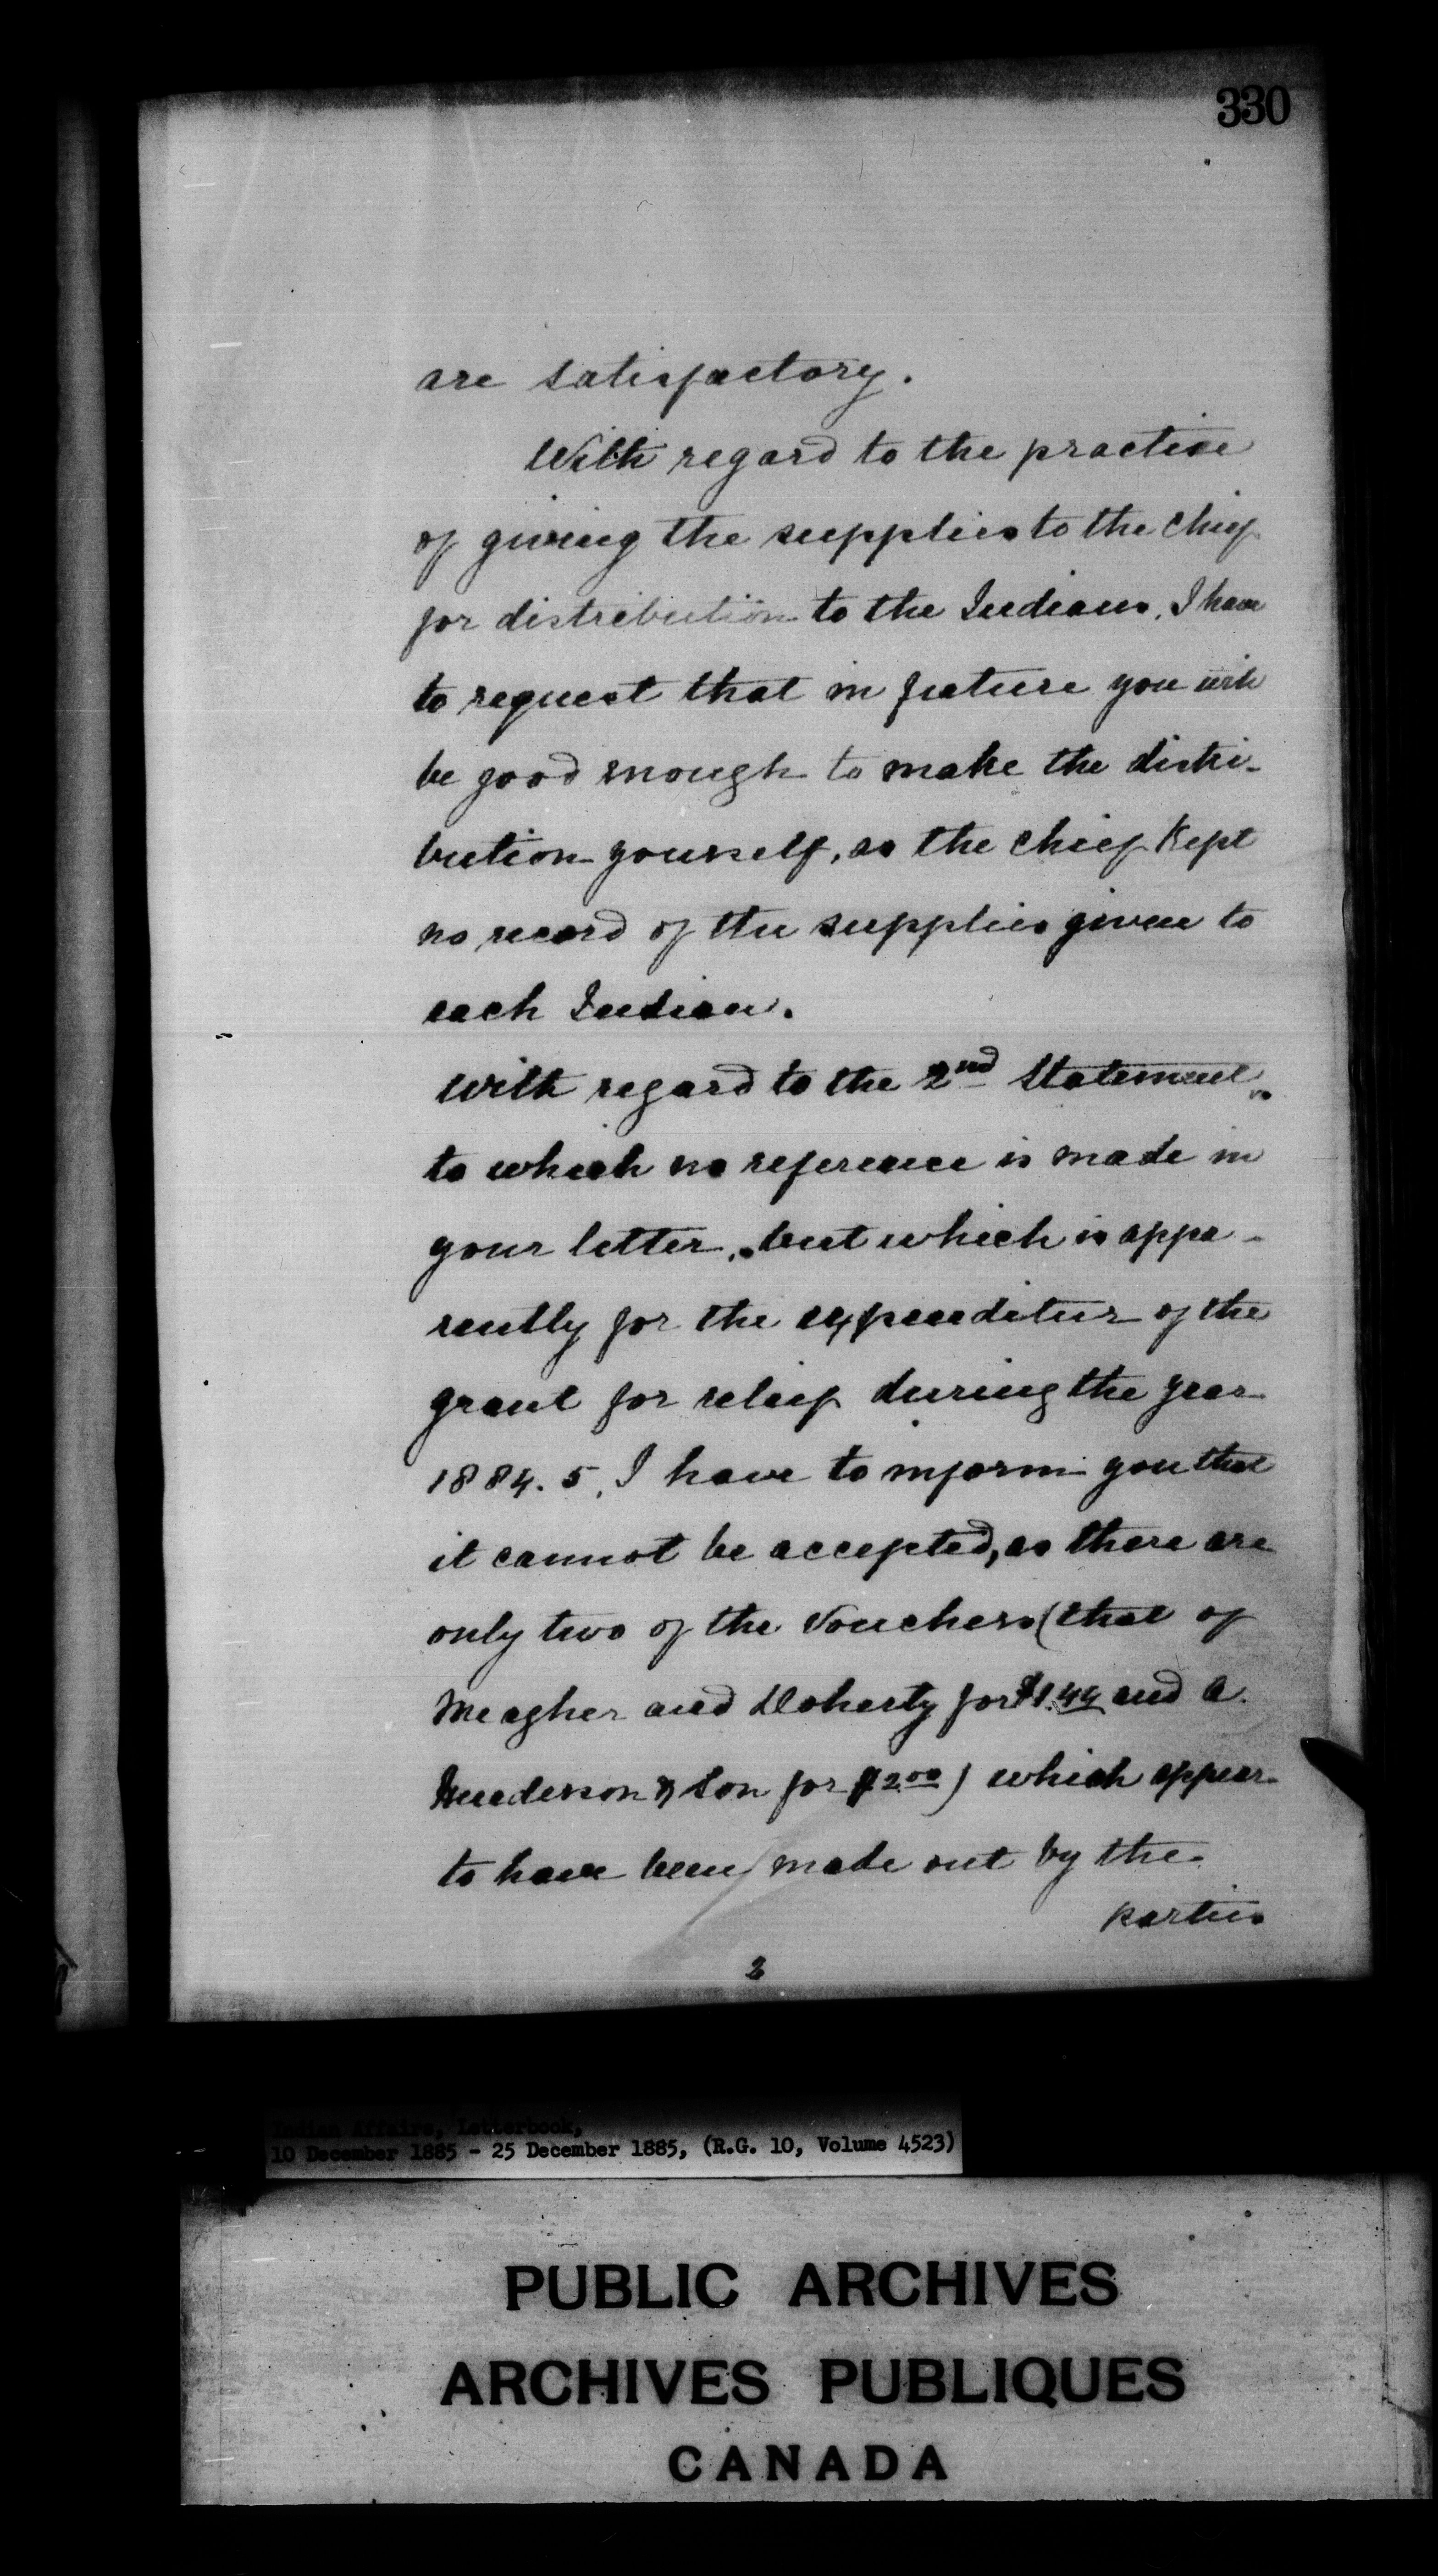 330
are satisfactory.
With regard to the practice
of giving the supplies to the Chief
for distribution to the Indians, I have
to request that in future you will
be good enough to make the distri-
bution yourself, as the Chief kept
no record of the supplies given to
each Indian.
With regard to the 2nd Statement,
to which no reference is made in
your letter, but which is appa-
rently for the expenditure of the
grant for relief during the year
1884.5, I have to inform you that
it cannot be accepted, as there are
only two of the Vouchers (that of
Meagher and Doherty for $1.44 and A.
Henderson & Son for $2.00) which appear
to have been made out by the
parties
2
Indian Affairs, Letterbook,
10 December 1885 - 25 December 1885, (R.G. 10, Volume 4523)
PUBLIC ARCHIVES
ARCHIVES PUBLIQUES
CANADA